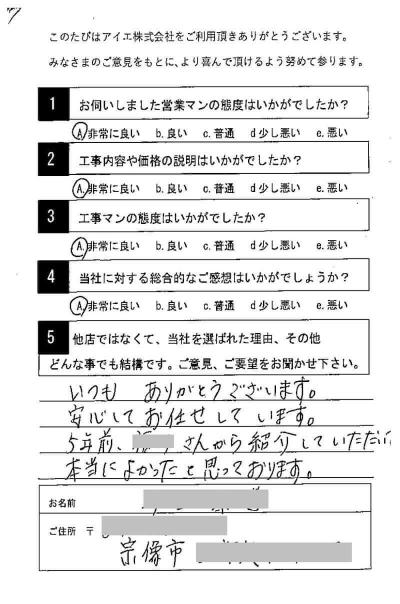 このたびはアイエ株式会社をご利用頂きありがとうございます。
みなさまのご意見をもとに、より喜んで頂けるよう努めて参ります。
1 お伺いしました営業マンの態度はいかがでしたか？
A.非常に良い b.良い c.普通 d少し悪い e.悪い
2 工事内容や価格の説明はいかがでしたか？
A.非常に良い b.良い c.普通 d少し悪い e.悪い
3 工事マンの態度はいかがでしたか？
A.非常に良い b.良い c.普通 d少し悪い e.悪い
4 当社に対する総合的なご感想はいかがでしょうか？
A.非常に良い b.良い c.普通 d少し悪い e.悪い
5 他店ではなくて、当社を選ばれた理由、その他
どんな事でも結構です。ご意見、ご要望をお聞かせ下さい。
いつも ありがとうございます。
安心してお任せして います。
5年前、 さんから紹介していただい
本当によかったと思っております。
お名前
ご住所 〒
宗像市